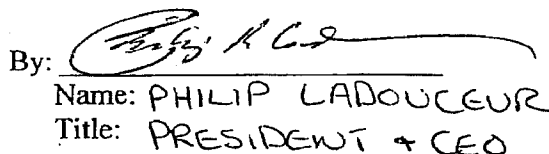 By:
Name: PHILIP LADOUCEUR
Title: PRESIDENT + CEO